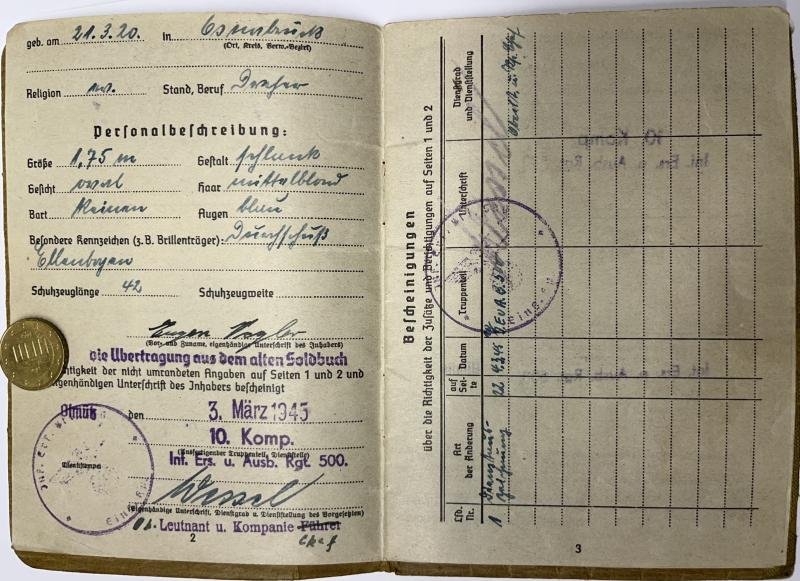 geb. am 21.3.20. in Osnabrück
(Ort, Kreis, Verw.-Bezirk)
Religion ev. Stand, Beruf Dreher
Personalbeschreibung:
Größe 1,75 m Gestalt schlank
Gesicht oval Haar mittelblond
Bart keinen Augen blau
Besondere Kennzeichen (z.B. Brillenträger): Durchschuß
Ellenbogen
Schuhzeuglänge 42 Schuhzeugweite
Eugen
(Vor- und Zuname, eigenhändige Unterschrift des Inhabers)
die Übertragung aus dem alten Soldbuch
htigkeit der nicht umrandeten Angaben auf Seiten 1 und 2 und
eigenhändigen Unterschrift des Inhabers bescheinigt
Olmütz den 3. März 1945
10. Komp.
(Ausfertigender Truppenteil, Dienststelle)
Inf. Ers. u. Ausb. Rgt. 500.
Dienststempel
Wessel
(Eigenhändige Unterschrift, Dienstgrad u. Dienststellung des Vorgesetzten)
Ob. Leutnant u. Kompanie Führer
Chef
2
Bescheinigungen
über die Richtigkeit der Zusätze und Berichtigungen auf Seiten 1 und 2
Lfd. Nr.
Art der Änderung
auf Seite
Datum
Truppenteil
Unterschrift
Dienstgrad und Dienststellung
1
10. Komp
Inf. Ers. u. Ausb. Rgt
3